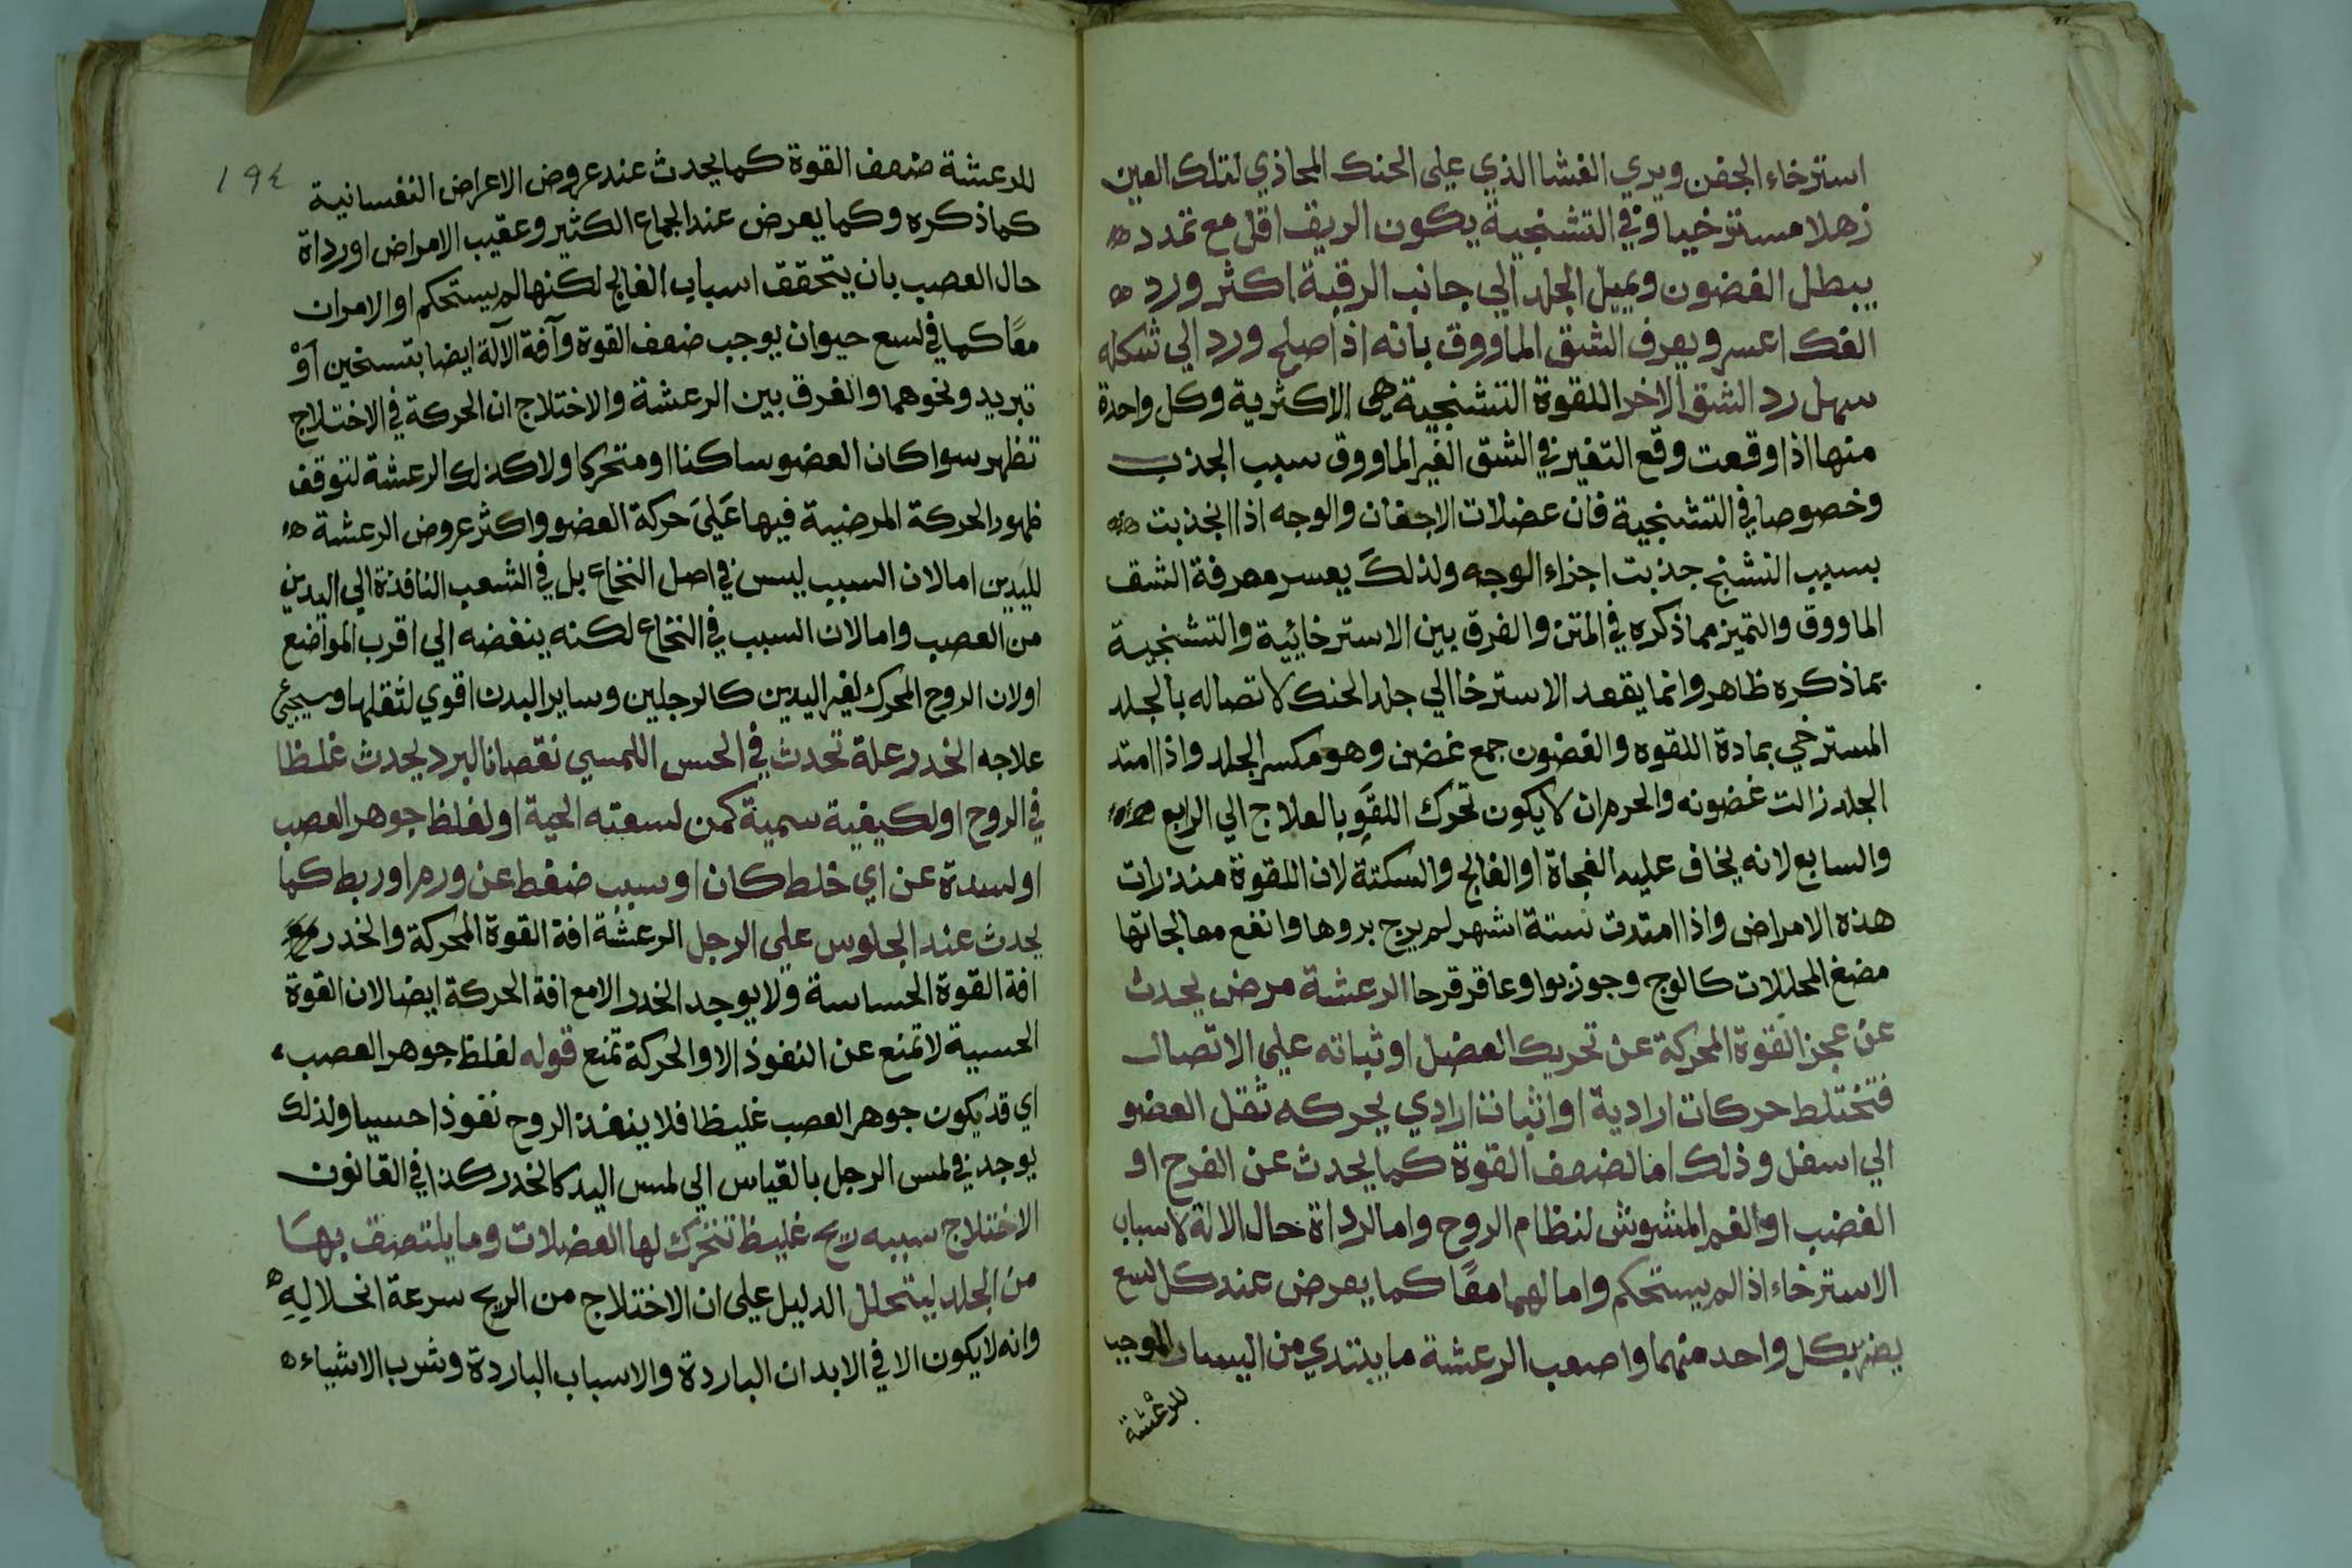 استرخاء الجفن ويري الغشا الذي علي الحنك المحاذي لتلك العين
زهلا مسترخيا وفي التشنجية يكون الريق اقل مع تمدد
يبطل الغضون ويميل الجلد الي جانب الرقبة اكثر ورد
الفك اعسر ويعرف الشق الماووق بانه اذا اصلح ورد الي شكله
سهل رد الشق الاخر اللقوة التشنجية هي الاكثرية وكل واحدة
منها اذا وقعت وقع التغير في الشق الغير الماووق سبب الجذب
وخصوصا في التشنجية فان عضلات الاجفان والوجه اذا انجذبت
بسبب التشنج جذبت اجزاء الوجه ولذلك يعسر معرفة الشق
الماووق والتميز مما ذكره في المتن والفرق بين الاسترخائية والتشنجية
بما ذكره ظاهر وانما يقعد الاسترخا الي جلد الحنك لاتصاله بالجلد
المسترخي بمادة اللقوه والغضون جمع غضن وهو مكسر الجلد واذا امتد
الجلد زالت غضونه والحرمان لا يكون تحرك اللقو بالعلاج الي الرابع
والسابع لانه يخاف عليه الفجاة او الفالج والسكتة لان اللقوة منذرات
هذه الامراض واذا امتدت ستة اشهر لم يرج بروها وانفع معالجاتها
مضغ المحللات كالوج وجوزبوا وعاقرقرحا الرعشة مرض يحدث
عن عجز القوة المحركة عن تحريك العضل او ثباته علي الاتصال
فتختلط حركات ارادية او اثبات ارادي يحركه ثقل العضو
الي اسفل وذلك اما لضعف القوة كما يحدث عن الفرح او
الغضب او الغم المشوش لنظام الروح واما لرداة حال الالة لاسباب
الاسترخاء اذا لم يستحكم واما لهما معًا كما يعرض عند كل لسع
يضر بكل واحد منهما واصعب الرعشة ما يبتدي من اليسار الموجب
للرعشة
١٩٤
للرعشة ضعف القوة كما يحدث عند عروض الاعراض النفسانية
كما ذكره وكما يعرض عند الجماع الكثير وعقيب الامراض او رداة
حال العصب بان يتحقق اسباب الفالج لكنها لم يستحكم او الامران
معًا كما في لسع حيوان يوجب ضعف القوة وآفة الآلة ايضا بتسخين اوْ
تبريد ونحوهما والفرق بين الرعشة والاختلاج ان الحركة في الاختلاج
تظهر سوا كان العضو ساكنا او متحركا ولا كذلك الرعشة لتوقف
ظهور الحركة المرضية فيها عَليَ حركة العضو واكثر عروض الرعشة
لليدين اما لان السبب ليس في اصل النخاع بل في الشعب النافذة الي اليدين
من العصب واما لان السبب في النخاع لكنه ينفضه الي اقرب المواضع
او لان الروح المحرك لغير اليدين كالرجلين وساير البدن اقوي لثقلها وسيجيُ
علاجه الخدر علة تحدث في الحس اللمسي نقصانا لبرد يحدث غلظا
في الروح او لكيفية سمية كمن لسعته الحية او لغلظ جوهر العصب
او لسدة عن اي خلط كان او سبب ضغط عن ورم او ربط كما
يحدث عند الجلوس علي الرجل الرعشة افة القوة المحركة والخدر
افة القوة الحساسة ولا يوجد الخدر الا مع افة الحركة ايضا لان القوة
الحسية لا تمنع عن النفوذ الا والحركة تمنع قوله لغلظ جوهر العصب
اي قد يكون جوهر العصب غليظا فلا ينفذ الروح نفوذا حسيا ولذلك
يوجد في لمس الرجل بالقياس الي لمس اليد كالخدر كذا في القانون
الاختلاج سببه ريح غليظ تتحرك لها العضلات وما يلتصق بهَا
من الجلد ليتحلل الدليل علي ان الاختلاج من الريح سرعة انحلالهِ
وانه لا يكون الا في الابدان الباردة والاسباب الباردة وشرب الاشياء